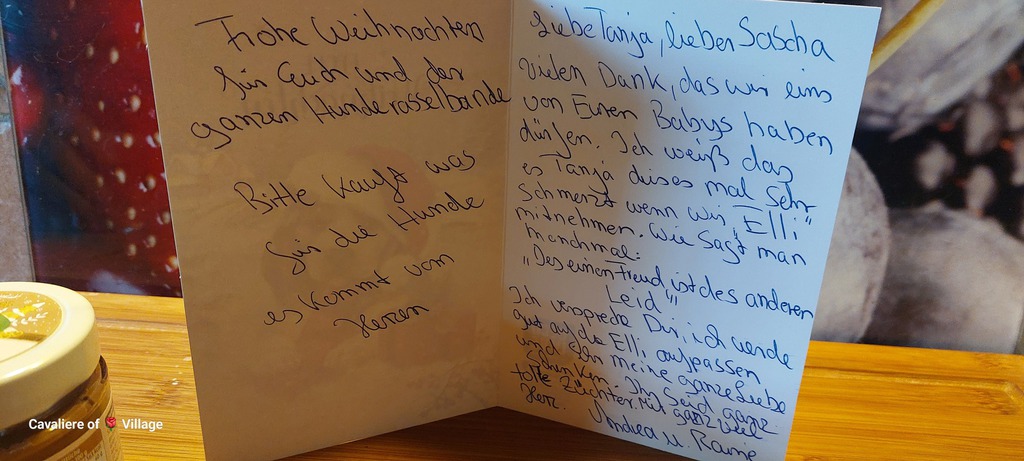 Frohe Weihnachten
für Euch und der
ganzen Hunderasselbande
Bitte kauft was
für die Hunde
es kommt vom
Herzen
Liebe Tanja, lieber Sascha
vielen Dank, das wir eins
von Euren Babys haben
dürfen. Ich weiß das
es Tanja dieses mal Sehr
Schmerzt wenn wir „Elli“
mitnehmen. Wie sagt man
manchmal:
„Des einen freud, ist des anderen
Leid“
Ich verspreche Dir, ich werde
gut auf die Elli aufpassen
und meine ganze Liebe
Schenken. Ihr Seid ganz
tolle Züchter, mit ganz viel
Herz.
Andrea u.
Cavaliere of 🌹 Village